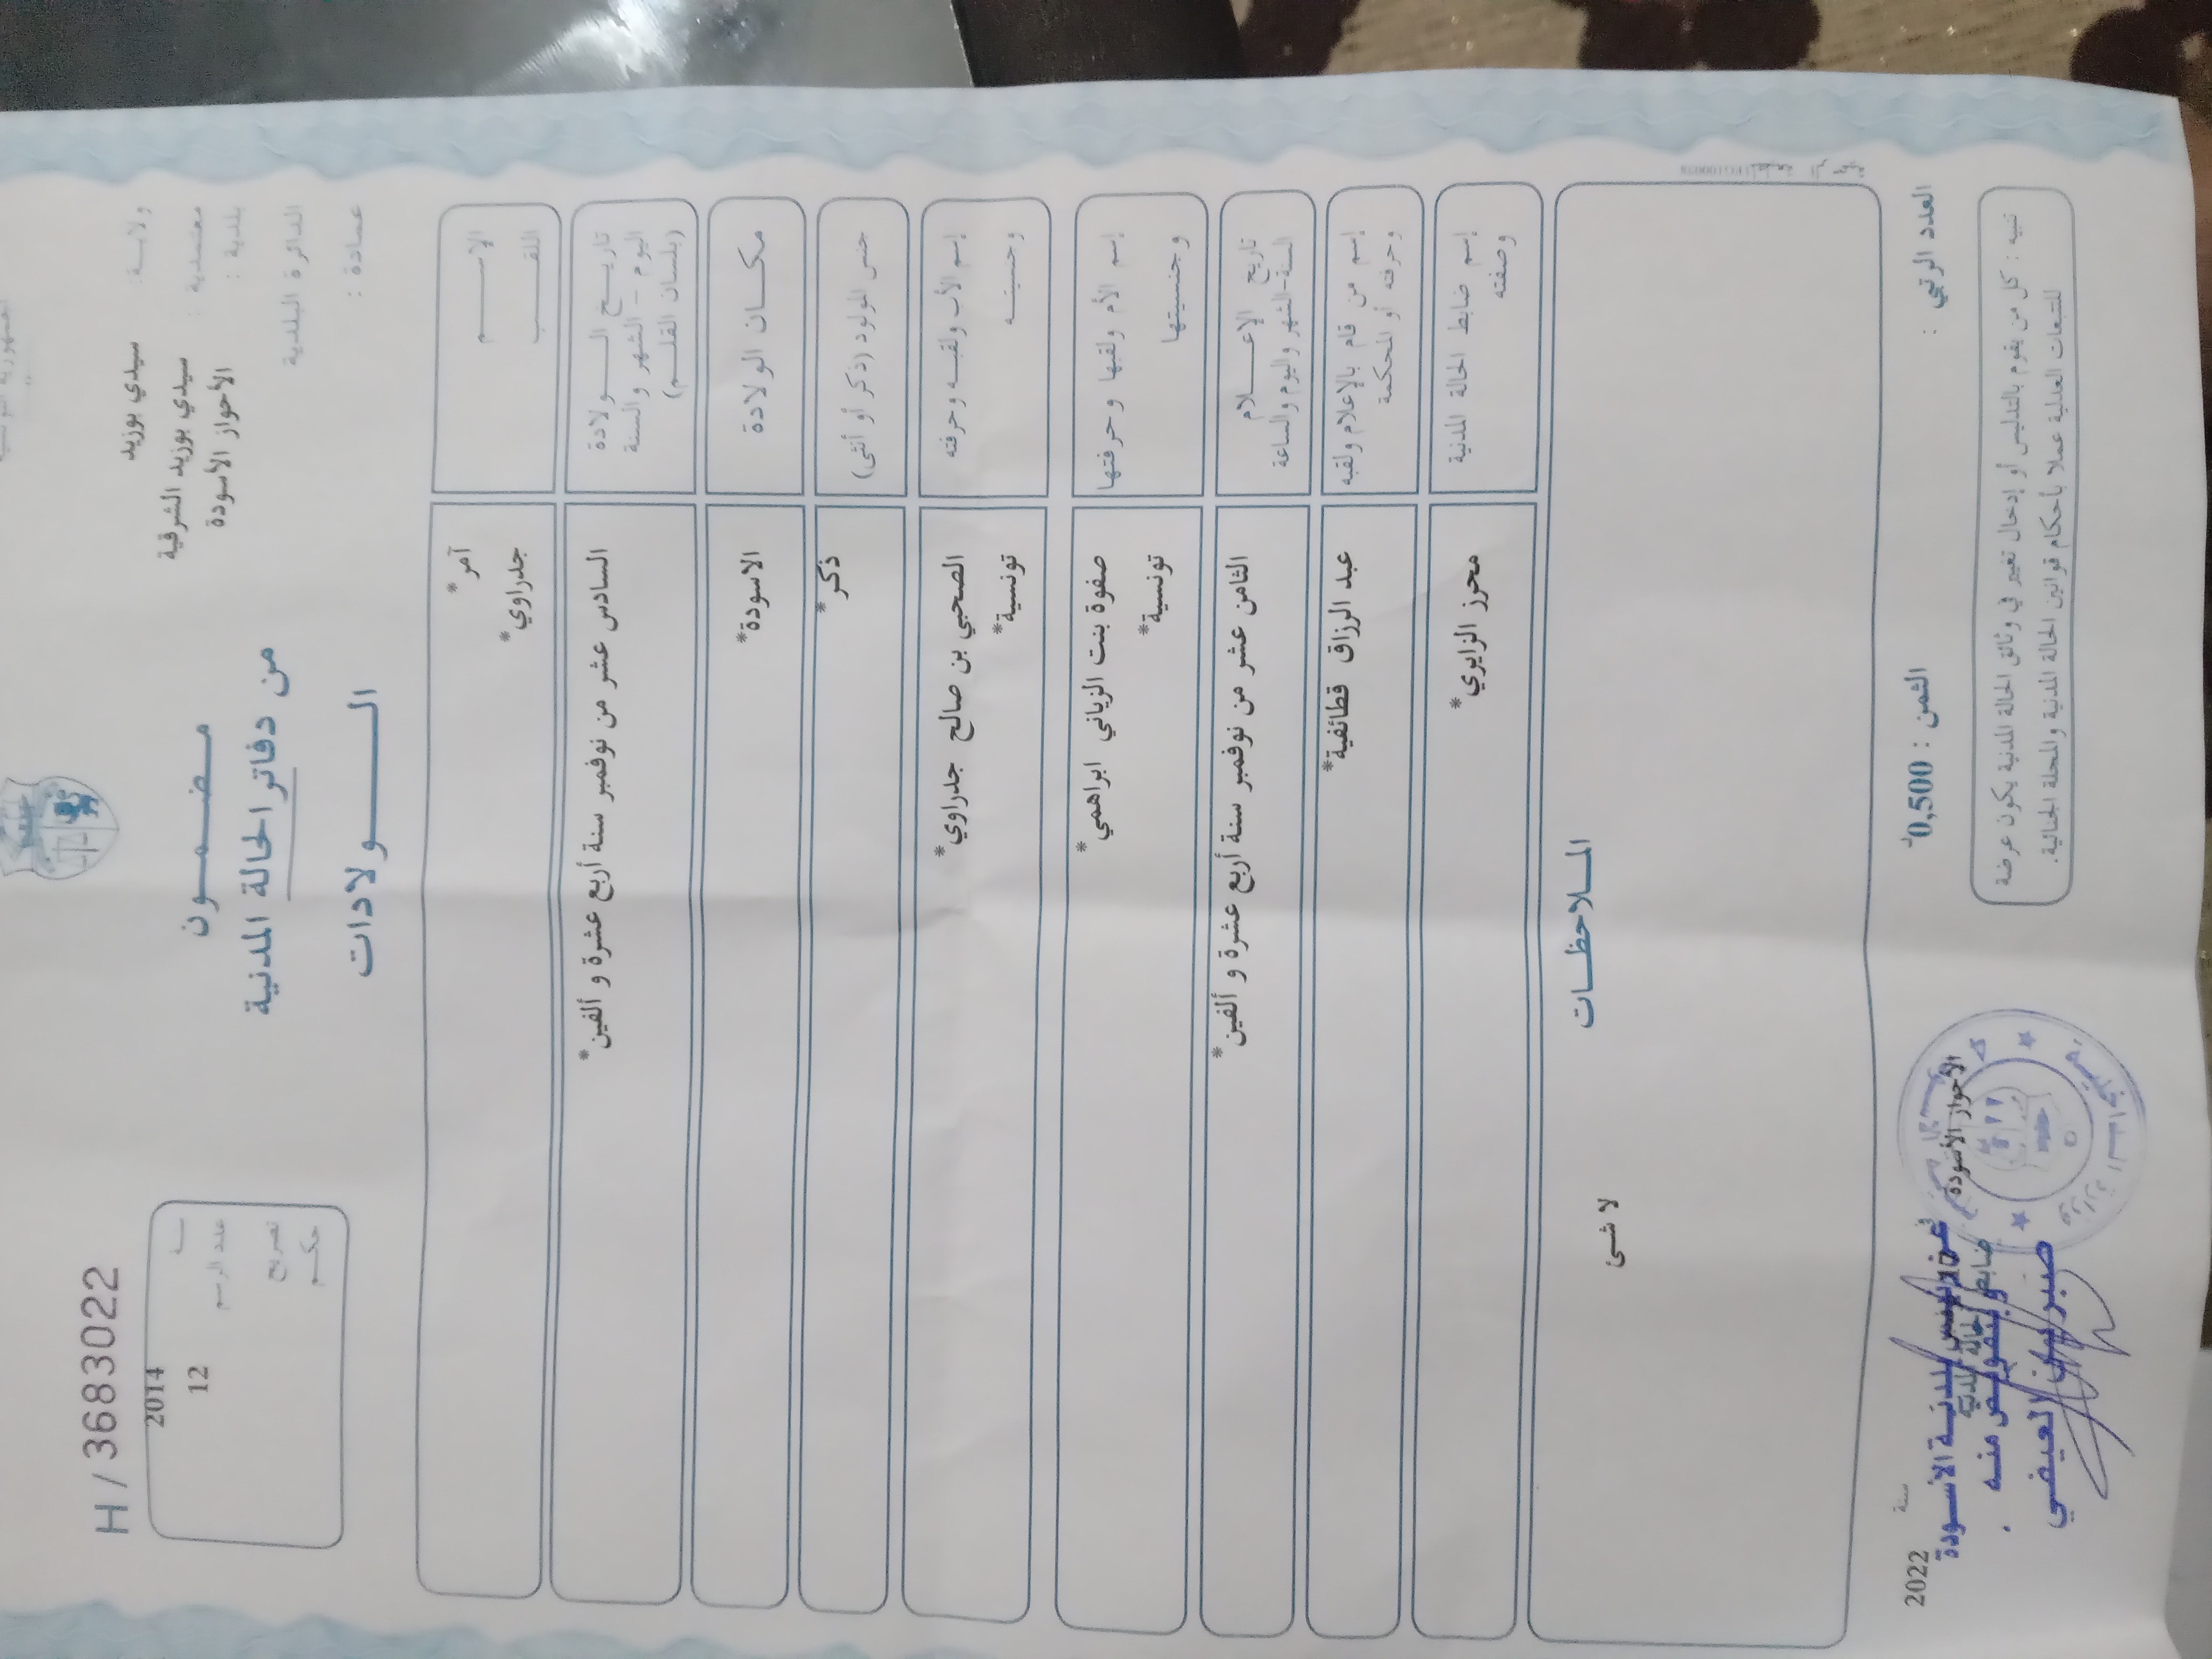 الجمهورية التونسية
H / 3683022
ولايــة : سيدي بوزيد
معتمدية : سيدي بوزيد الشرقية
بلدية : الأحواز الأسودة
الدائرة البلدية
عمادة :
مـضـمـــون
من دفاتر الحالة المدنية
الـــــولادات
2014
عدد الرسم 12
تصريح
حكــم
الإســـــم آمر*
اللقـــب جدراوي*
تاريــخ الـــولادة السادس عشر من نوفمبر سنة أربع عشرة و ألفين*
اليوم - الشهر والسنة
(بلسان القلــم)
مكــان الولادة الاسودة*
جنس المولود (ذكر أو أنثى) ذكر*
إسم الأب ولقبــه وحرفته الصحبي بن صالح جدراوي*
وجنسيتــه تونسية*
إسم الأم ولقبها وحرفتها صفوة بنت الزياني ابراهمي*
وجنسيتها تونسية*
تاريخ الإعــــلام الثامن عشر من نوفمبر سنة أربع عشرة و ألفين*
السنة-الشهر واليوم والساعة
إسم من قام بالإعلام ولقبه عبد الرزاق قطائفية*
وحرفته أو المحكمة
إسم ضابط الحالة المدنية محرز الزايري*
وصفته
المــلاحظــات
لا شئ
العدد الرتبي :
الثمن : 0,500د
سنة 2022
الأحواز الأسودة
ضابط الحالة المدنية
عن رئيس بلدية الأسودة
وبتفويض منه
صبرين العيفي
تنبيه : كل من يقوم بالتدليس أو إدخال تغيير في وثائق الحالة المدنية يكون عرضة
للتتبعات العدلية عملا بأحكام قوانين الحالة المدنية والمجلة الجنائية.